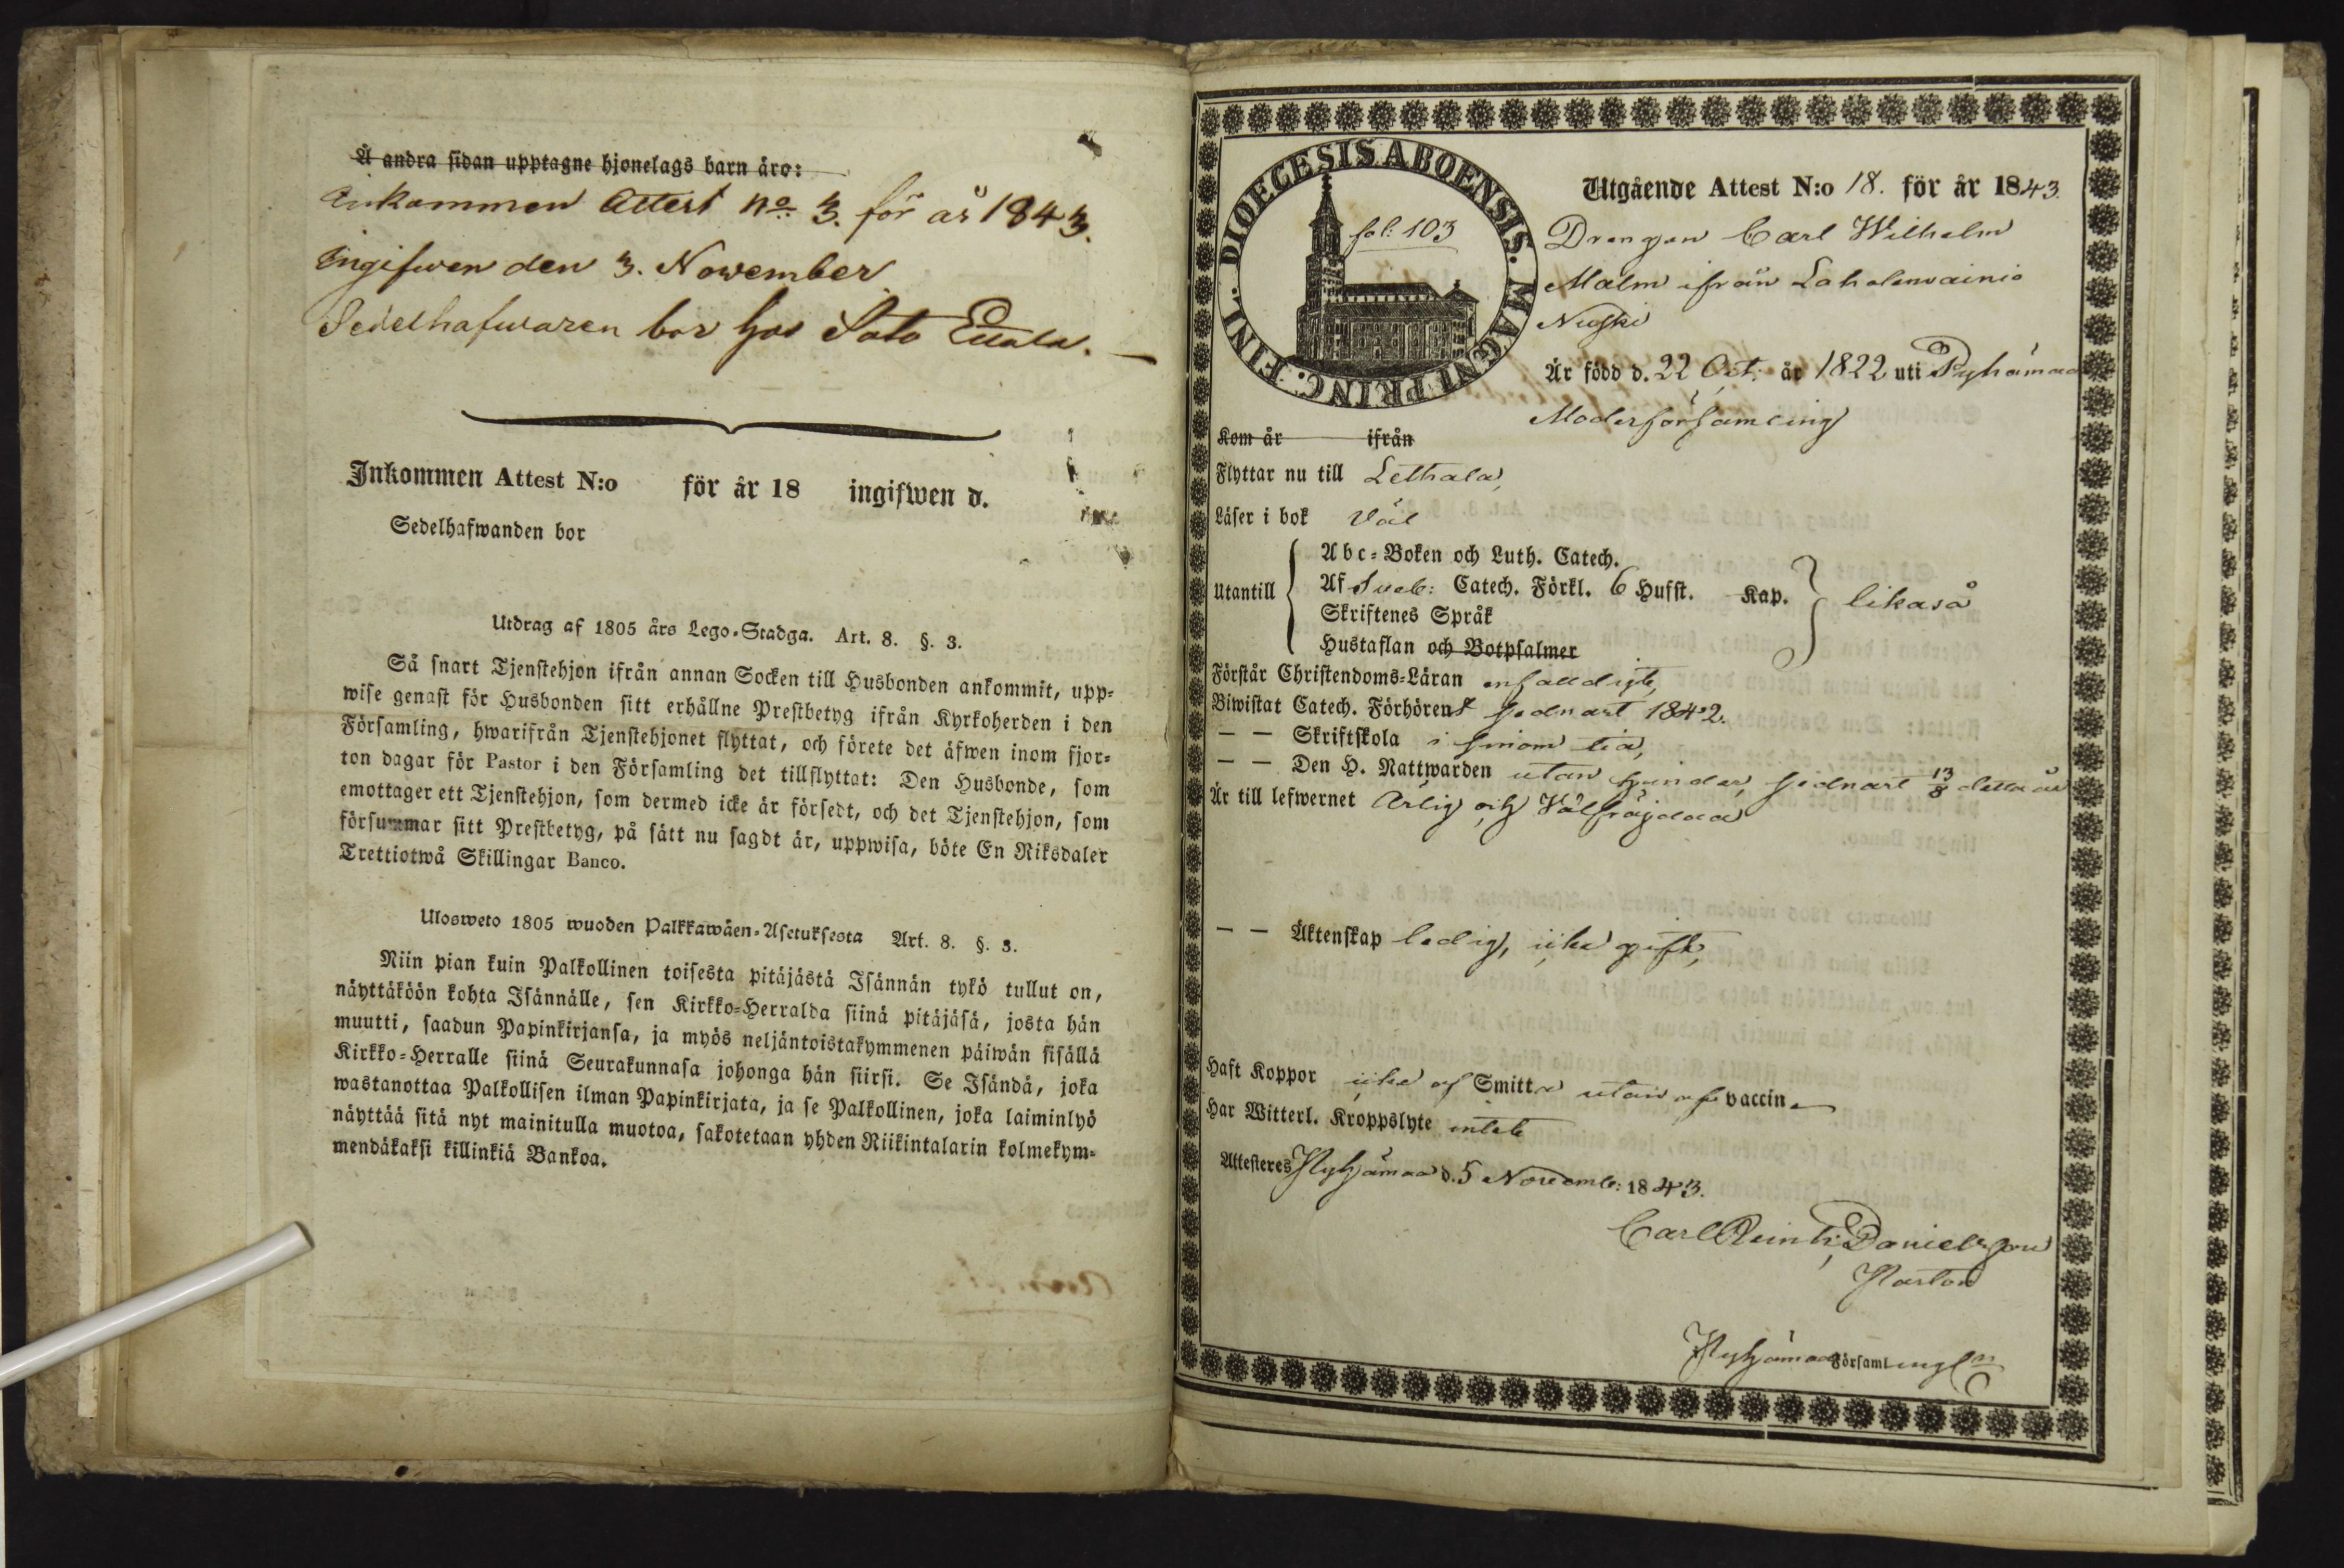 Å andra sidan upptagne hjonelags barn äro:
Inkommen Attest No. 3. för år 1843.
Ingifwen den 3. November
Sedelhafwaren bor hos Sato Ettala.
Inkommen Attest N:o för år 18 ingifwen d.
Sedelhafwanden bor
Utdrag af 1805 års Lego-Stadga. Art. 8. §. 3.
Så snart Tjenstehjon ifrån annan Socken till Husbonden ankommit, upp-
wise genast för Husbonden sitt erhållne Prestbetyg ifrån Kyrkoherden i den
Församling, hwarifrån Tjenstehjonet flyttat, och förete det äfwen inom fjor-
ton dagar för Pastor i den Församling det tillflyttat: Den Husbonde, som
emottager ett Tjenstehjon, som dermed icke är försedt, och det Tjenstehjon, som
försummar sitt Prestbetyg, på sätt nu sagdt är, uppwisa, böte En Riksdaler
Trettiotwå Skillingar Banco.
Ulosweto 1805 wuoden Palkkawäen-Asetuksesta Art. 8. §. 3.
Niin pian kuin Palkollinen toisesta pitäjästä Isännän tykö tullut on,
näyttäköön kohta Isännälle, sen Kirkko-Herralda siinä pitäjäsä, josta hän
muutti, saadun Papinkirjansa, ja myös neljäntoistakymmenen päiwän sisällä
Kirkko-Herralle siinä Seurakunnasa johonga hän siirsi. Se Isändä, joka
wastanottaa Palkollisen ilman Papinkirjata, ja se Palkollinen, joka laiminlyö
näyttää sitä nyt mainitulla muotoa, sakotetaan yhden Riikintalarin kolmekym-
mendäkaksi killinkiä Bankoa.
DIOECESIS ABOENSIS. MAGNI PRINC. FINL.
fol: 103
Utgående Attest N:o 18. för år 1843.
Drengen Carl Wilhelm
Malm ifrån Laholanvainio
Nuski
Är född d. 22 Oct: år 1822 uti Pyhämaa
Moderförsamling
Kom år ifrån
Flyttar nu till Lethala,
Läser i bok Väl
Utantill
Abc-Boken och Luth. Catech.
Af Sveb: Catech. Förkl. 6 Hufst. Kap.
Skriftenes Språk
Hustaflan och Botpsalmer
likaså
Förstår Christendoms-Läran enfalldigt,
Biwistat Catech. Förhören sednast 1842.
— — Skriftskola i sinom tid,
— — Den H. Nattwarden utan hinder, sednast 13/8 detta år
Är till lefwernet Ärlig och Välfrägdad
— — Äktenskap ledig, icke gift,
Haft Koppor icke af Smitta utan af vaccin
Har Witterl. Kroppslyte intet
Attesteres Pyhämaa d. 5 Novemb: 1843.
Carl Reinh: Danielsson
Pastor
Pyhämaa Församlings